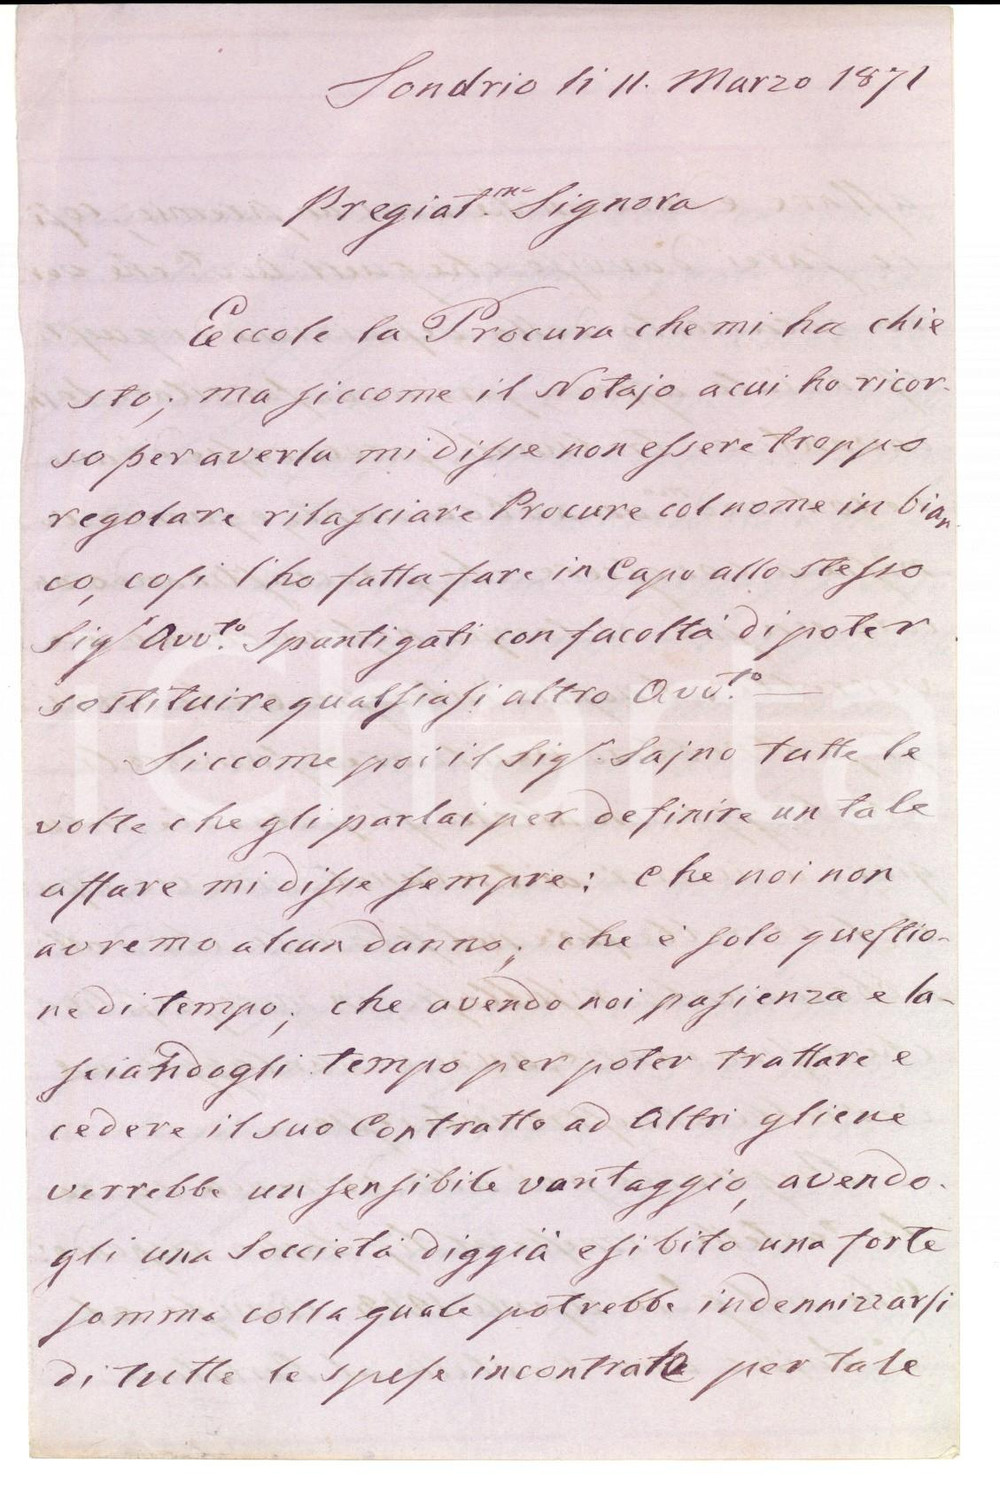 Sondrio li 11. Marzo 1871
Pregiat.ma Signora
Eccole la Procura che mi ha chie
sto; ma siccome il Notajo a cui ho ricor-
so per averla mi disse non essere troppo
regolare rilasciare Procure col nome in bian
co, così l'ho fatta fare in Capo allo stesso
Sigr Avv.to Spantigati con facoltà di poter
sostituire qualsiasi altro Avv.to —
Siccome poi il Sigr. Sajno tutte le
volte che gli parlai per definire un tale
affare mi disse sempre: che noi non
avremo alcun danno; che è solo questio-
ne di tempo; che avendo noi pasienza e la-
sciandogli tempo per poter trattare e
cedere il suo Contratto ad Altri gliene
verrebbe un sensibile vantaggio, avendo-
gli una Soccietà diggià esibito una forte
somma colla quale potrebbe indennizzarsi
di tutte le spese incontrate per tale
iCharta